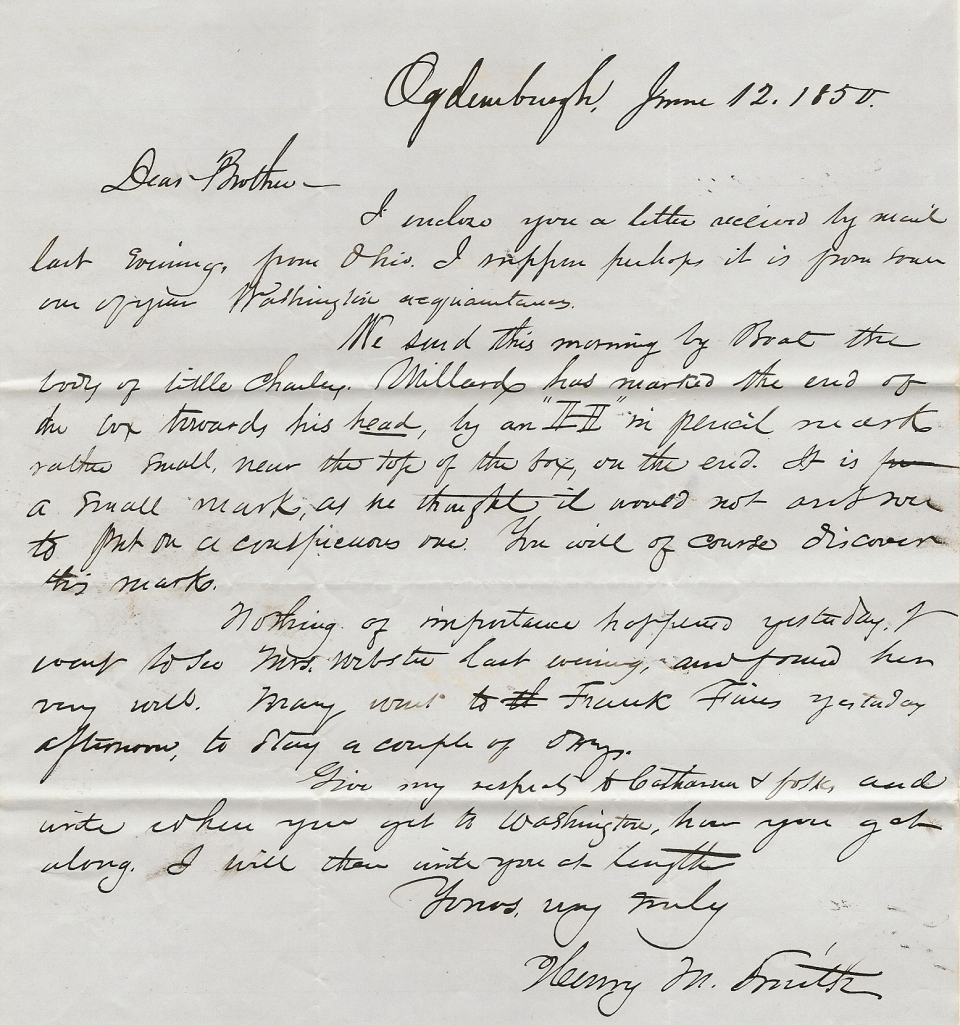 Ogdensburgh, June 12. 1850.
Dear Brother—
I enclose you a letter received by mail
last Evening, from Ohio. I suppose perhaps it is from some
one of your Washington acquaintances.
We send this morning by Boat the
body of little Charley. Millard has marked the end of
the box towards his head, by an "H" in pencil mark
rather small, near the top of the box, on the end. It is
a small mark, as he thought it would not answer
to put on a conspicuous one. You will of course discover
this mark.
Nothing of importance happened yesterday. I
went to see Mrs. Webster last evening, and found her
very well. Mary went to Frank Fines yesterday
afternoon, to stay a couple of days.
Give my respects to Catharine & folks, and
write when you get to Washington, how you get
along. I will then write you at length
Yours, very truly
Henry M. Smith